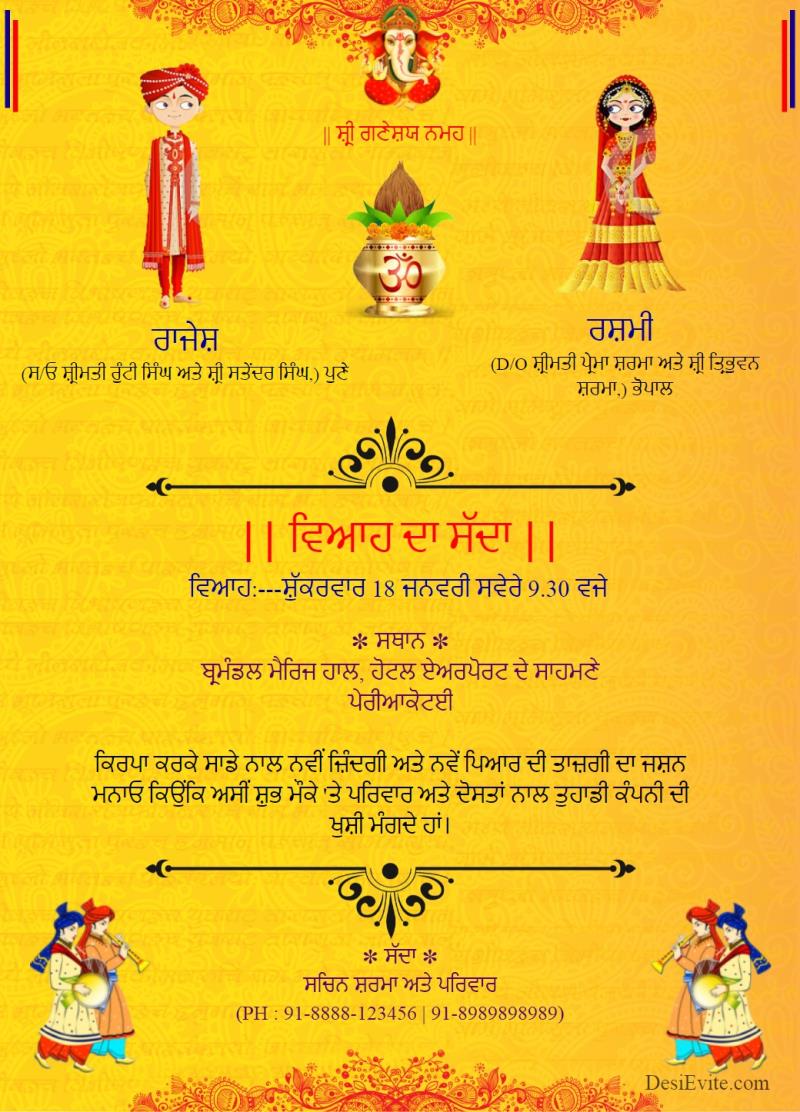 || ਸ਼੍ਰੀ ਗਣੇਸ਼ਯ ਨਮਹ ||
ॐ
ਰਾਜੇਸ਼
(ਸ/ਓ ਸ਼੍ਰੀਮਤੀ ਰੁੰਟੀ ਸਿੰਘ ਅਤੇ ਸ਼੍ਰੀ ਸਤੇਂਦਰ ਸਿੰਘ,) ਪੁਣੇ
ਰਸ਼ਮੀ
(D/O ਸ਼੍ਰੀਮਤੀ ਪ੍ਰੇਮਾ ਸ਼ਰਮਾ ਅਤੇ ਸ਼੍ਰੀ ਤ੍ਰਿਭੁਵਨ
ਸ਼ਰਮਾ,) ਭੋਪਾਲ
|| ਵਿਆਹ ਦਾ ਸੱਦਾ ||
ਵਿਆਹ:---ਸ਼ੁੱਕਰਵਾਰ 18 ਜਨਵਰੀ ਸਵੇਰੇ 9.30 ਵਜੇ
✼ ਸਥਾਨ ✼
ਬ੍ਰਮੰਡਲ ਮੈਰਿਜ ਹਾਲ, ਹੋਟਲ ਏਅਰਪੋਰਟ ਦੇ ਸਾਹਮਣੇ
ਪੇਰੀਆਕੋਟਈ
ਕਿਰਪਾ ਕਰਕੇ ਸਾਡੇ ਨਾਲ ਨਵੀਂ ਜ਼ਿੰਦਗੀ ਅਤੇ ਨਵੇਂ ਪਿਆਰ ਦੀ ਤਾਜ਼ਗੀ ਦਾ ਜਸ਼ਨ
ਮਨਾਓ ਕਿਉਂਕਿ ਅਸੀਂ ਸ਼ੁਭ ਮੌਕੇ 'ਤੇ ਪਰਿਵਾਰ ਅਤੇ ਦੋਸਤਾਂ ਨਾਲ ਤੁਹਾਡੀ ਕੰਪਨੀ ਦੀ
ਖੁਸ਼ੀ ਮੰਗਦੇ ਹਾਂ।
✼ ਸੱਦਾ ✼
ਸਚਿਨ ਸ਼ਰਮਾ ਅਤੇ ਪਰਿਵਾਰ
(PH : 91-8888-123456 | 91-8989898989)
DesiEvite.com